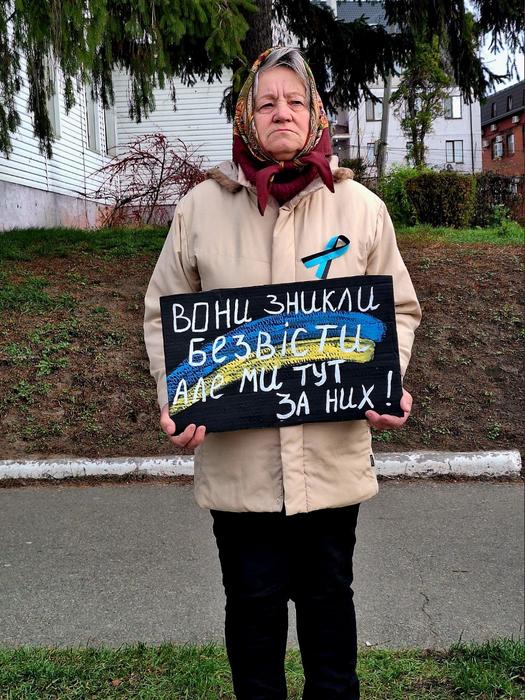 ВОНИ ЗНИКЛИ
БЕЗВІСТИ
АЛЕ МИ ТУТ
ЗА НИХ!